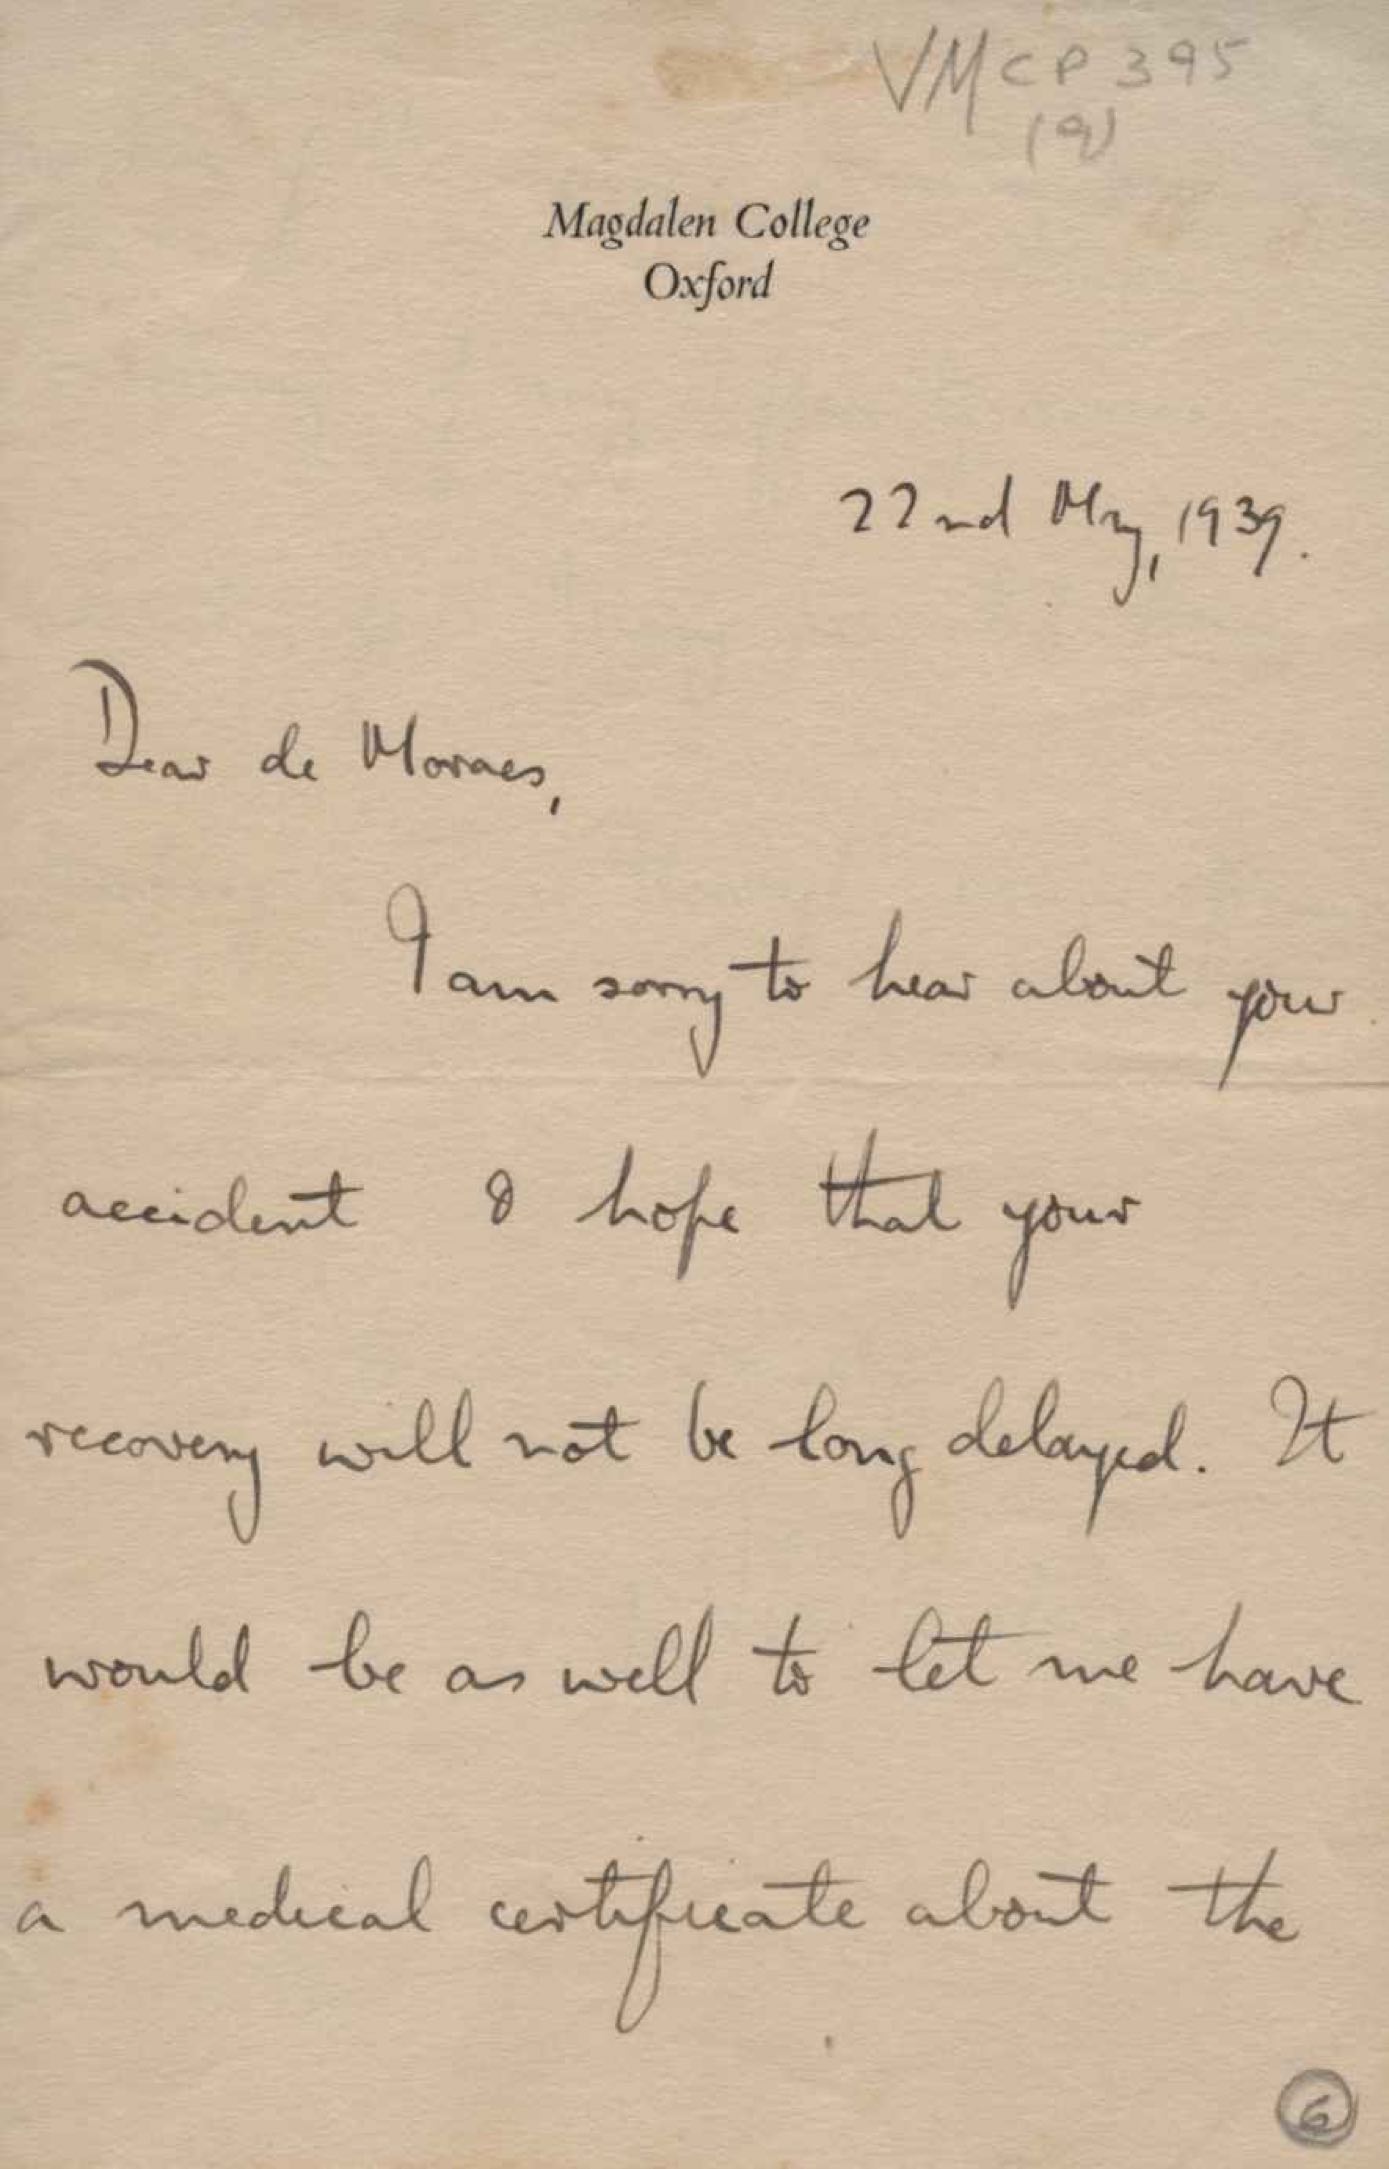 VM CP 395
(9)
Magdalen College
Oxford
22nd May, 1939.
Dear de Moraes,
I am sorry to hear about your
accident & hope that your
recovery will not be long delayed. It
would be as well to let me have
a medical certificate about the
6